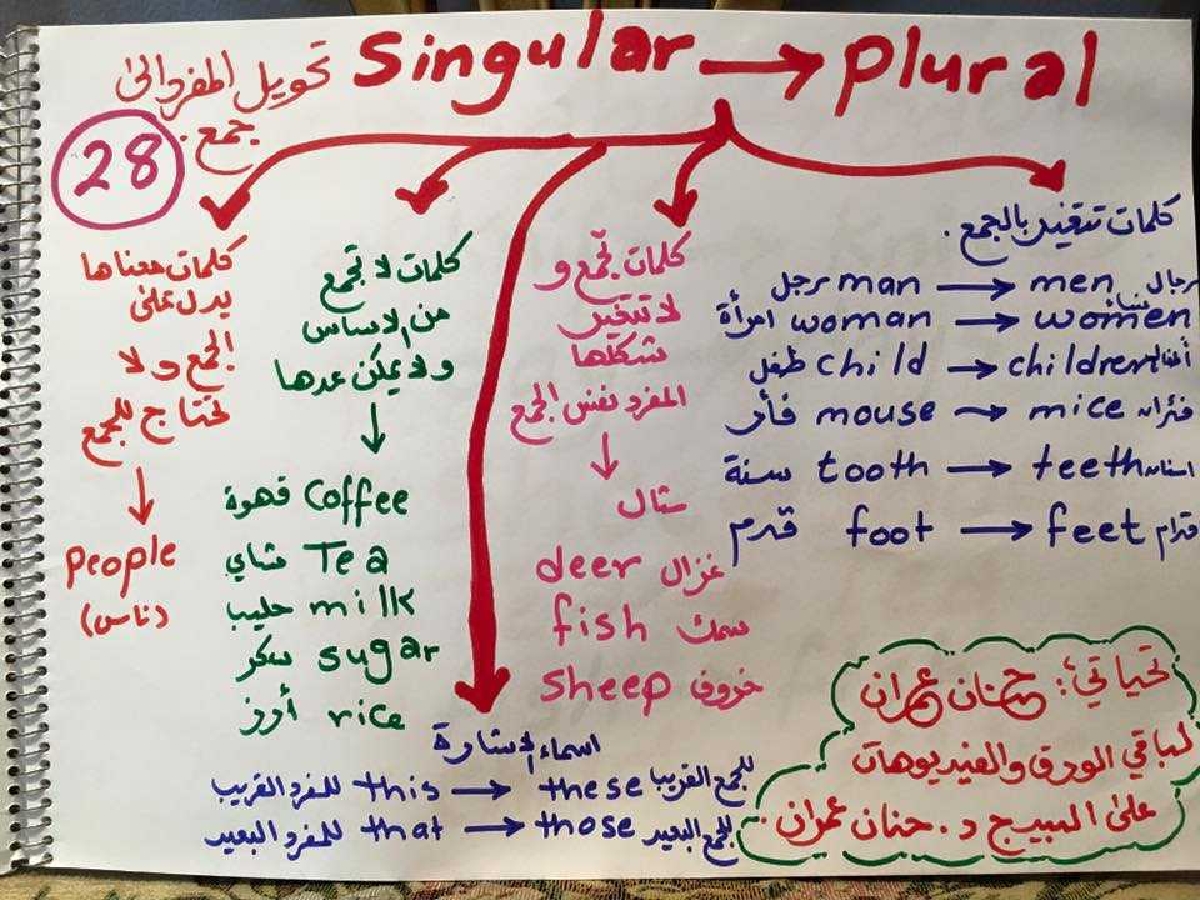 تحويل المفرد الى Singular → Plural
جمع.
28
كلمات تتغير بالجمع.
رجل man → men رجال
امرأة woman → women نساء
طفل child → children أطفال
فأر mouse → mice فئران
سنة tooth → teeth اسنان
قدم foot → feet
كلمات تجمع و
لا تتغير
شكلها
المفرد نفس الجمع
↓
مثال
deer غزال
fish سمك
sheep خروف
كلمات لا تجمع
من الاساس
ولا يمكن عدها
↓
قهوة Coffee
شاي Tea
حليب milk
سكر sugar
أرز rice
كلمات معناها
يدل على
الجمع ولا
تحتاج للجمع
↓
People
(ناس)
اسماء الاشارة
للمفرد القريب this → these للجمع القريب
للمفرد البعيد that → those للجمع البعيد
تحياتي: حنان عمران
لباقي الورق والفيديوهات
على البيج د. حنان عمران.